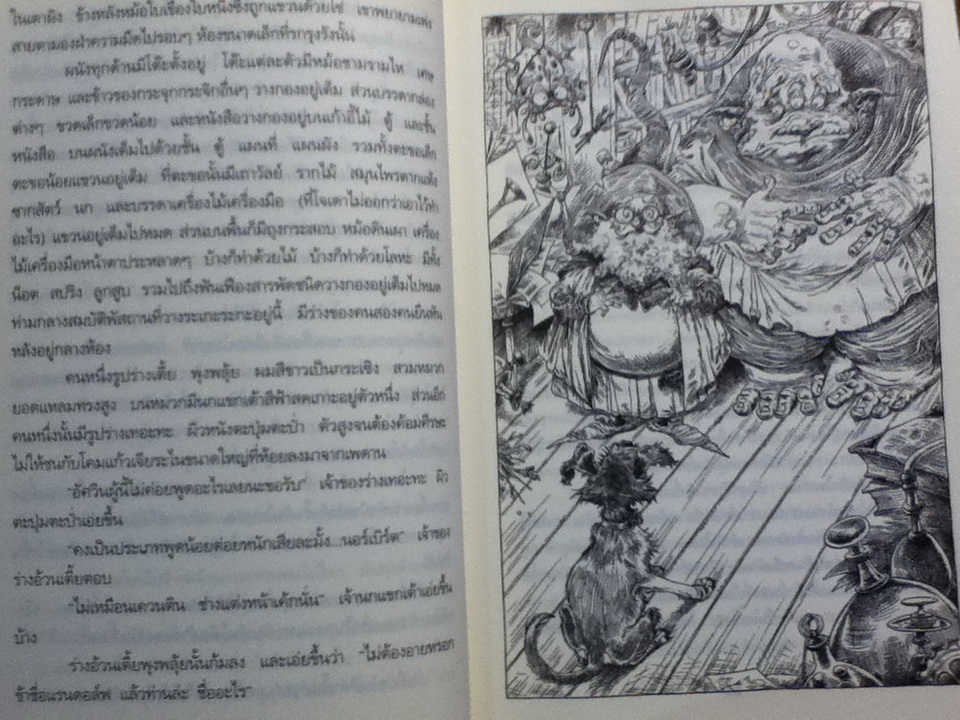 ในเตาผิง ข้างหลังหม้อใบเขื่องใบหนึ่งซึ่งถูกแขวนด้วยโซ่ เขาพยายามเพ่ง
สายตามองฝ่าความมืดไปรอบๆ ห้องขนาดเล็กที่รกรุงรังนั้น
ผนังทุกด้านมีโต๊ะตั้งอยู่ โต๊ะแต่ละตัวมีหม้อชามรามไห เศษ
กระดาษ และข้าวของกระจุกกระจิกอื่นๆ วางกองอยู่เต็ม ส่วนบรรดากล่อง
ต่างๆ ขวดเล็กขวดน้อย และหนังสือวางกองอยู่บนเก้าอี้ไม้ ตู้ และชั้น
หนังสือ บนผนังเต็มไปด้วยชั้น ตู้ แผนที่ แผนผัง รวมทั้งตะขอเล็ก
ตะขอน้อยแขวนอยู่เต็ม ที่ตะขอนั้นมีเถาวัลย์ รากไม้ สมุนไพรตากแห้ง
ซากสัตว์ นก และบรรดาเครื่องไม้เครื่องมือ (ที่โจเดาไม่ออกว่าเอาไว้ทำ
อะไร) แขวนอยู่เต็มไปหมด ส่วนบนพื้นก็มีถุงกระสอบ หม้อดินเผา เครื่อง
ไม้เครื่องมือหน้าตาประหลาดๆ บ้างก็ทำด้วยไม้ บ้างก็ทำด้วยโลหะ มีทั้ง
น็อต สปริง ลูกสูบ รวมไปถึงฟันเฟืองสารพัดชนิดวางกองอยู่เต็มไปหมด
ท่ามกลางสมบัติพัสถานที่วางระเกะระกะอยู่นี้ มีร่างของคนสองคนยืนหัน
หลังอยู่กลางห้อง
คนหนึ่งรูปร่างเตี้ย พุงพลุ้ย ผมสีขาวเป็นกระเซิง สวมหมวก
ยอดแหลมทรงสูง บนหมวกมีนกแขกเต้าสีฟ้าสดเกาะอยู่ตัวหนึ่ง ส่วนอีก
คนหนึ่งนั้นมีรูปร่างเทอะทะ ผิวหนังตะปุ่มตะป่ำ ตัวสูงจนต้องค้อมศีรษะ
ไม่ให้ชนกับโคมแก้วเจียระไนขนาดใหญ่ที่ห้อยลงมาจากเพดาน
"อัศวินผู้นี้ไม่ค่อยพูดอะไรเลยนะขอรับ" เจ้าของร่างเทอะทะ ผิว
ตะปุ่มตะป่ำเอ่ยขึ้น
"คงเป็นประเภทพูดน้อยต่อยหนักเสียละมั้ง...นอร์เบิร์ต" เจ้าของ
ร่างอ้วนเตี้ยตอบ
"ไม่เหมือนเควนติน ช่างแต่งหน้าเค้กนั่น" เจ้านกแขกเต้าเอ่ยขึ้น
บ้าง
ร่างอ้วนเตี้ยพุงพลุ้ยนั้นก้มลง และเอ่ยขึ้นว่า "ไม่ต้องอายหรอก
ข้าชื่อแรนดอล์ฟ แล้วท่านล่ะ ชื่ออะไร"